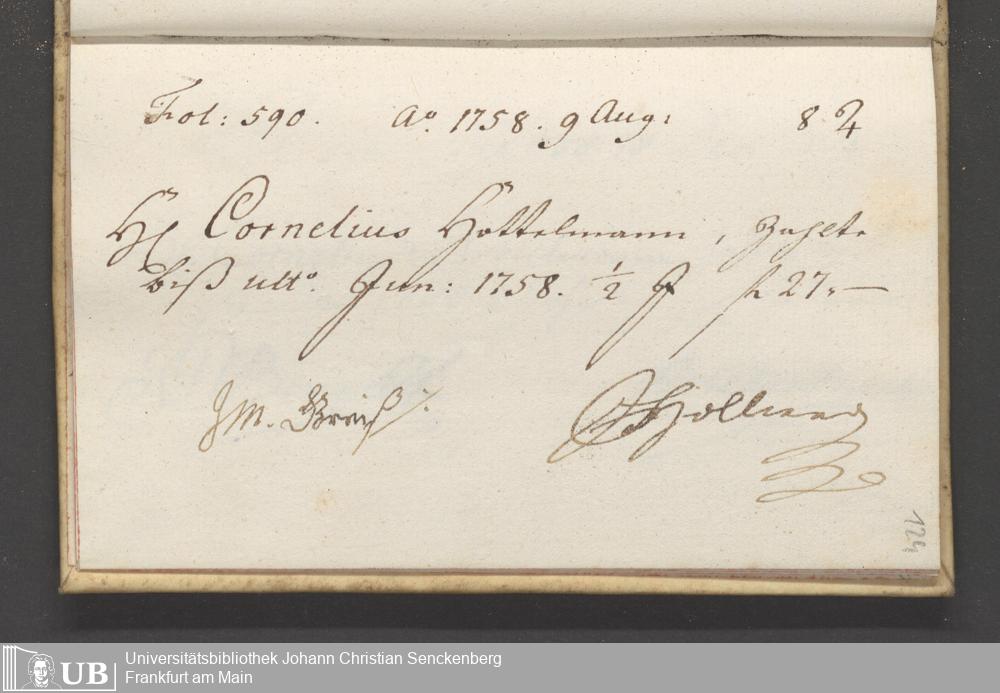 Fol: 590. Aō. 1758. 9 Aug: 8 2/4
H Cornelius Höttelmann, zahlte
biß ult̊. Jun: 1758. 1/2 J f 27,—
JM. Greiß
124
UB Universitätsbibliothek Johann Christian Senckenberg
Frankfurt am Main